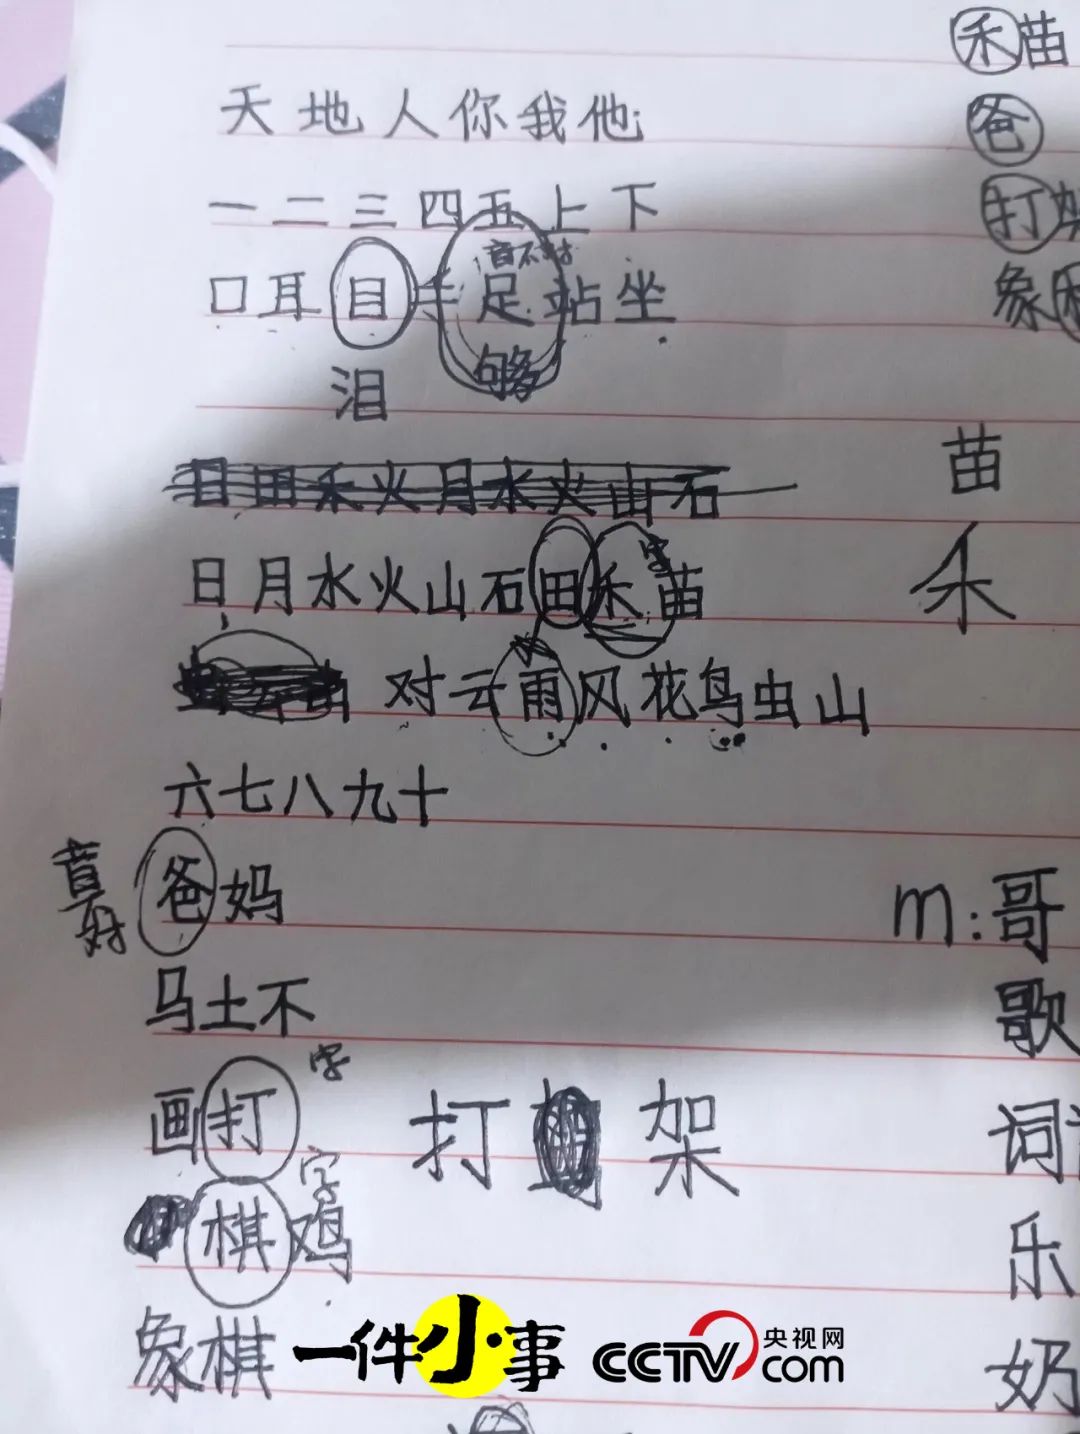 天地人你我他
一二三四五上下
音不
口耳目手足站坐
泪 够
日田禾火月水火山石
日月水火山石田禾苗
字
对云雨风花鸟虫山
六七八九十
爸妈
马土不
画打 字 打 架
棋鸡 字
象棋
禾苗
爸
打架
象棋
苗
禾
m:哥
歌
词
乐
奶
一件小事
CCTV.com 央视网